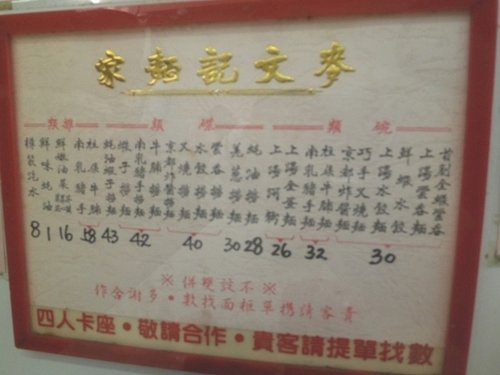 麥文記麵家
碗類
首創金蝦雲吞
上湯雲吞麵
鮮蝦水餃
上湯水餃麵
巧手叉燒麵
京都炸醬麵
柱侯牛腩麵
南乳豬手麵
上湯
上湯河
碟類
蠔油撈麵
羗葱撈麵
雲吞撈麵
水餃撈麵
叉燒撈麵
京都炸醬撈麵
牛腩撈麵
南乳豬手撈麵
蝦子撈麵
蠔油蝦子撈麵
類
柱侯牛腩
南乳豬手
鮮嫩油菜
鮮味蠔油
樽裝汽水
8 1 16 58 43 42 40 30 28 26 32 30
※不設雙併※
貴客請携單櫃面找數・多謝合作
四人卡座・敬請合作・貴客請提單找數